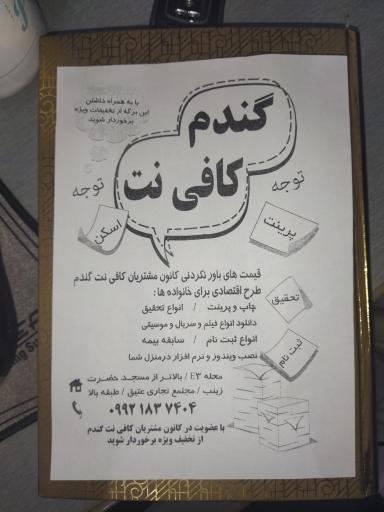 با به همراه داشتن
این برگه از تخفیفات ویژه
برخوردار شوید
گندم
کافی نت
توجه
توجه
اسکن
پرینت
قیمت های باور نکردنی کانون مشتریان کافی نت گندم
طرح اقتصادی برای خانواده ها :
چاپ و پرینت / انواع تحقیق
دانلود انواع فیلم و سریال و موسیقی
انواع ثبت نام / سابقه بیمه
نصب ویندوز و نرم افزار درمنزل شما
تحقیق
ثبت نام
محله E3 / بالاتر از مسجد حضرت
زینب / مجتمع تجاری عتیق / طبقه بالا
۰۹۹۲ ۱۸۳ ۷۴۰۴
با عضویت در کانون مشتریان کافی نت گندم
از تخفیف ویژه برخوردار شوید